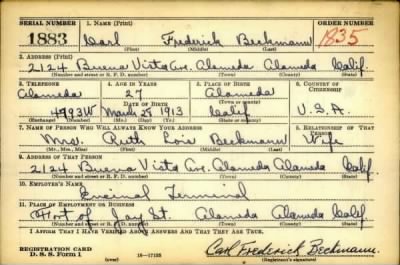 SERIAL NUMBER 1. NAME (Print) ORDER NUMBER
1883 Carl Frederick Beckmann 1835
(First) (Middle) (Last)
2. ADDRESS (Print)
2124 Buena Vista Ave. Alameda Alameda Calif.
(Number and street or R. F. D. number) (Town) (County) (State)
3. TELEPHONE 4. AGE IN YEARS 5. PLACE OF BIRTH 6. COUNTRY OF CITIZENSHIP
Alameda 27 Alameda
DATE OF BIRTH (Town or county)
4993W March 28 1913 Calif U.S.A.
(Exchange) (Number) (Mo.) (Day) (Yr.) (State or country)
7. NAME OF PERSON WHO WILL ALWAYS KNOW YOUR ADDRESS 8. RELATIONSHIP OF THAT PERSON
Mrs. Ruth Lois Beckmann Wife
(Mr., Mrs., Miss) (First) (Middle) (Last)
9. ADDRESS OF THAT PERSON
2124 Buena Vista Ave Alameda Alameda Calif.
(Number and street or R. F. D. number) (Town) (County) (State)
10. EMPLOYER'S NAME
Encinal Terminal
11. PLACE OF EMPLOYMENT OR BUSINESS
Foot of Jay St. Alameda Alameda Calif.
(Number and street or R. F. D. number) (Town) (County) (State)
I AFFIRM THAT I HAVE VERIFIED ABOVE ANSWERS AND THAT THEY ARE TRUE.
REGISTRATION CARD
D. S. S. Form 1 16—17105 Carl Frederick Beckmann.
(over) (Registrant's signature)